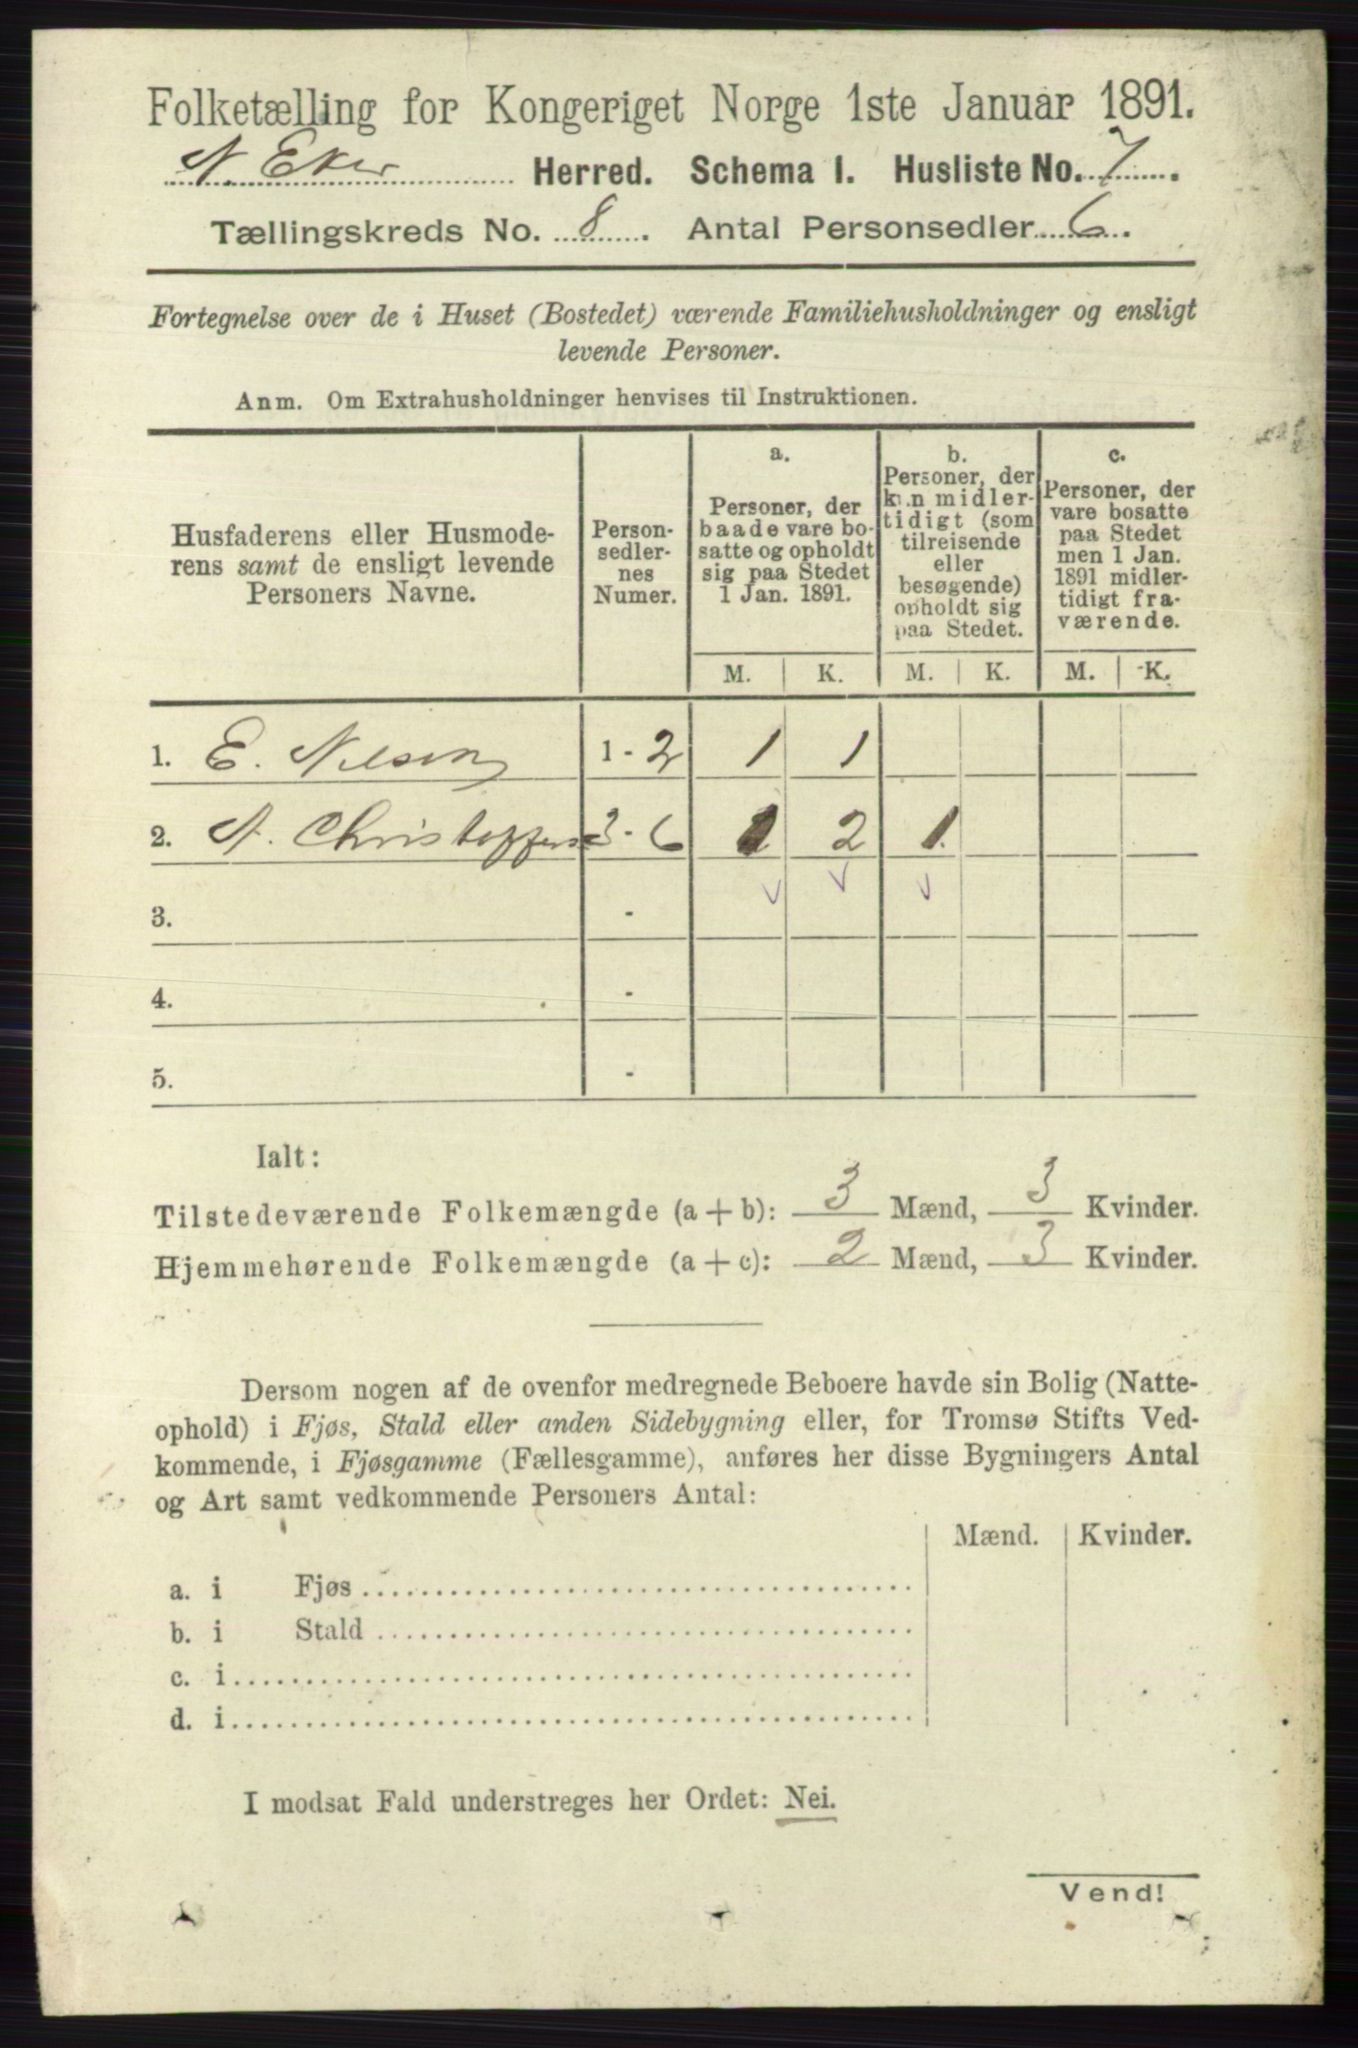 Folketælling for Kongeriget Norge 1ste Januar 1891.
N. Eker Herred. Schema I. Husliste No. 7.
Tællingskreds No. 8. Antal Personsedler 6.
Fortegnelse over de i Huset (Bostedet) værende Familiehusholdninger og ensligt
levende Personer.
Anm. Om Extrahusholdninger henvises til Instruktionen.
Husfaderens eller Husmode-
rens samt de ensligt levende
Personers Navne.
Person-
sedler-
nes
Numer.
a.
Personer, der
baade vare bo-
satte og opholdt
sig paa Stedet
1 Jan. 1891.
b.
Personer, der
kun midler-
tidigt (som
tilreisende
eller
besøgende)
opholdt sig
paa Stedet.
c.
Personer, der
vare bosatte
paa Stedet
men 1 Jan.
1891 midler-
tidigt fra-
værende.
M. K. M. K. M. K.
1. E. Nilsen 1 - 2 1 1
2. N. Christoffers 3 - 6 1 2 1
3. -
4. -
5. -
Ialt:
Tilstedeværende Folkemængde (a + b): 3 Mænd, 3 Kvinder.
Hjemmehørende Folkemængde (a + c): 2 Mænd, 3 Kvinder.
Dersom nogen af de ovenfor medregnede Beboere havde sin Bolig (Natte-
ophold) i Fjøs, Stald eller anden Sidebygning eller, for Tromsø Stifts Ved-
kommende, i Fjøsgamme (Fællesgamme), anføres her disse Bygningers Antal
og Art samt vedkommende Personers Antal:
Mænd. Kvinder.
a. i Fjøs
b. i Stald
c. i
d. i
I modsat Fald understreges her Ordet: Nei.
Vend!